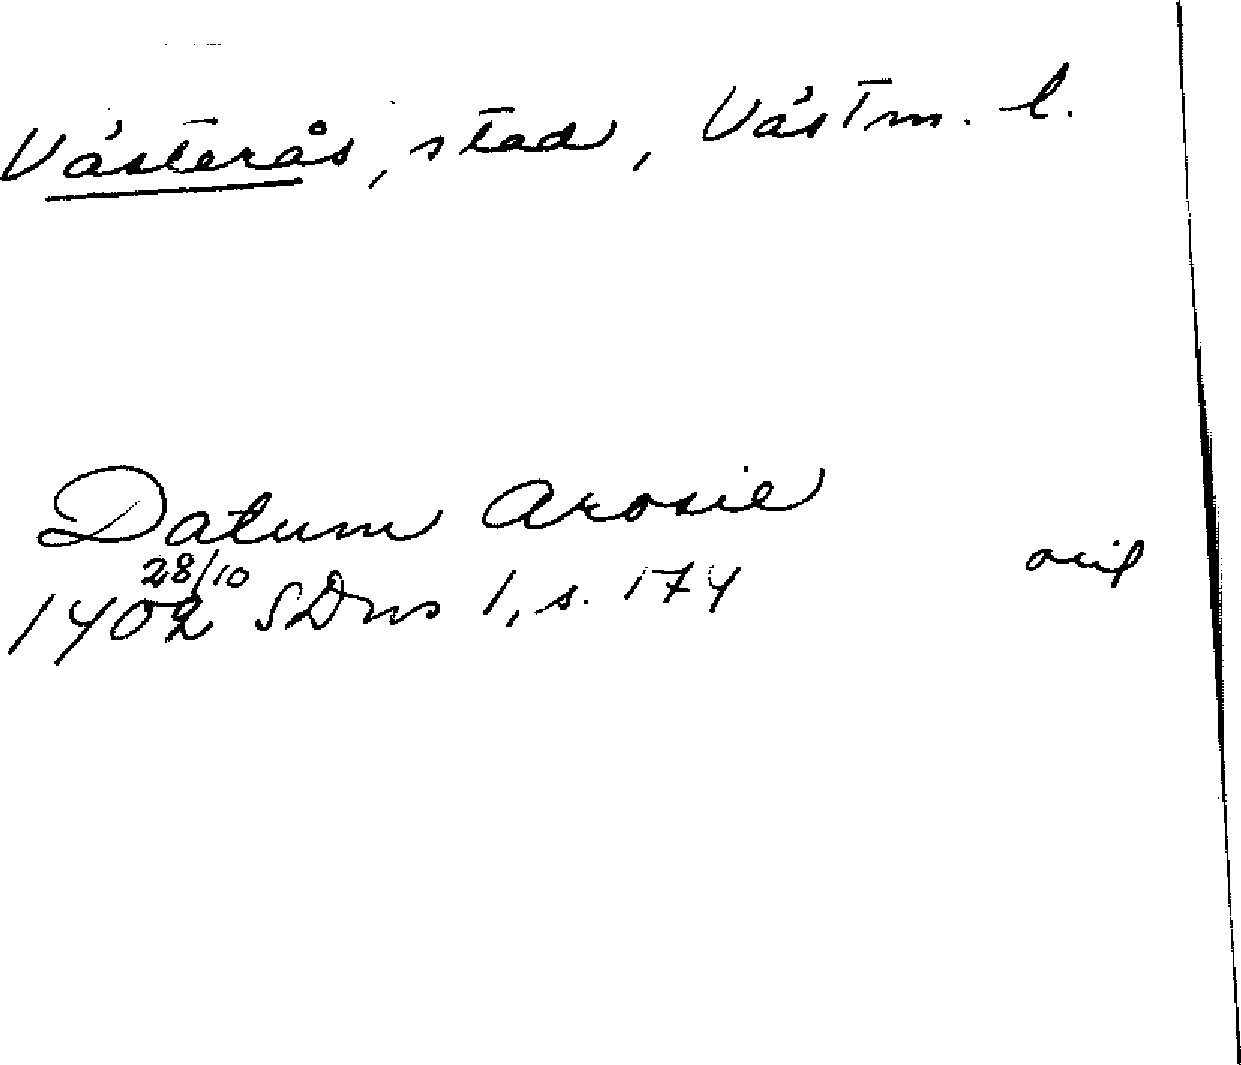 Västerås, stad, Västm. l.
Datum Arosie
1402 28/10 SDns 1, s. 174
orig